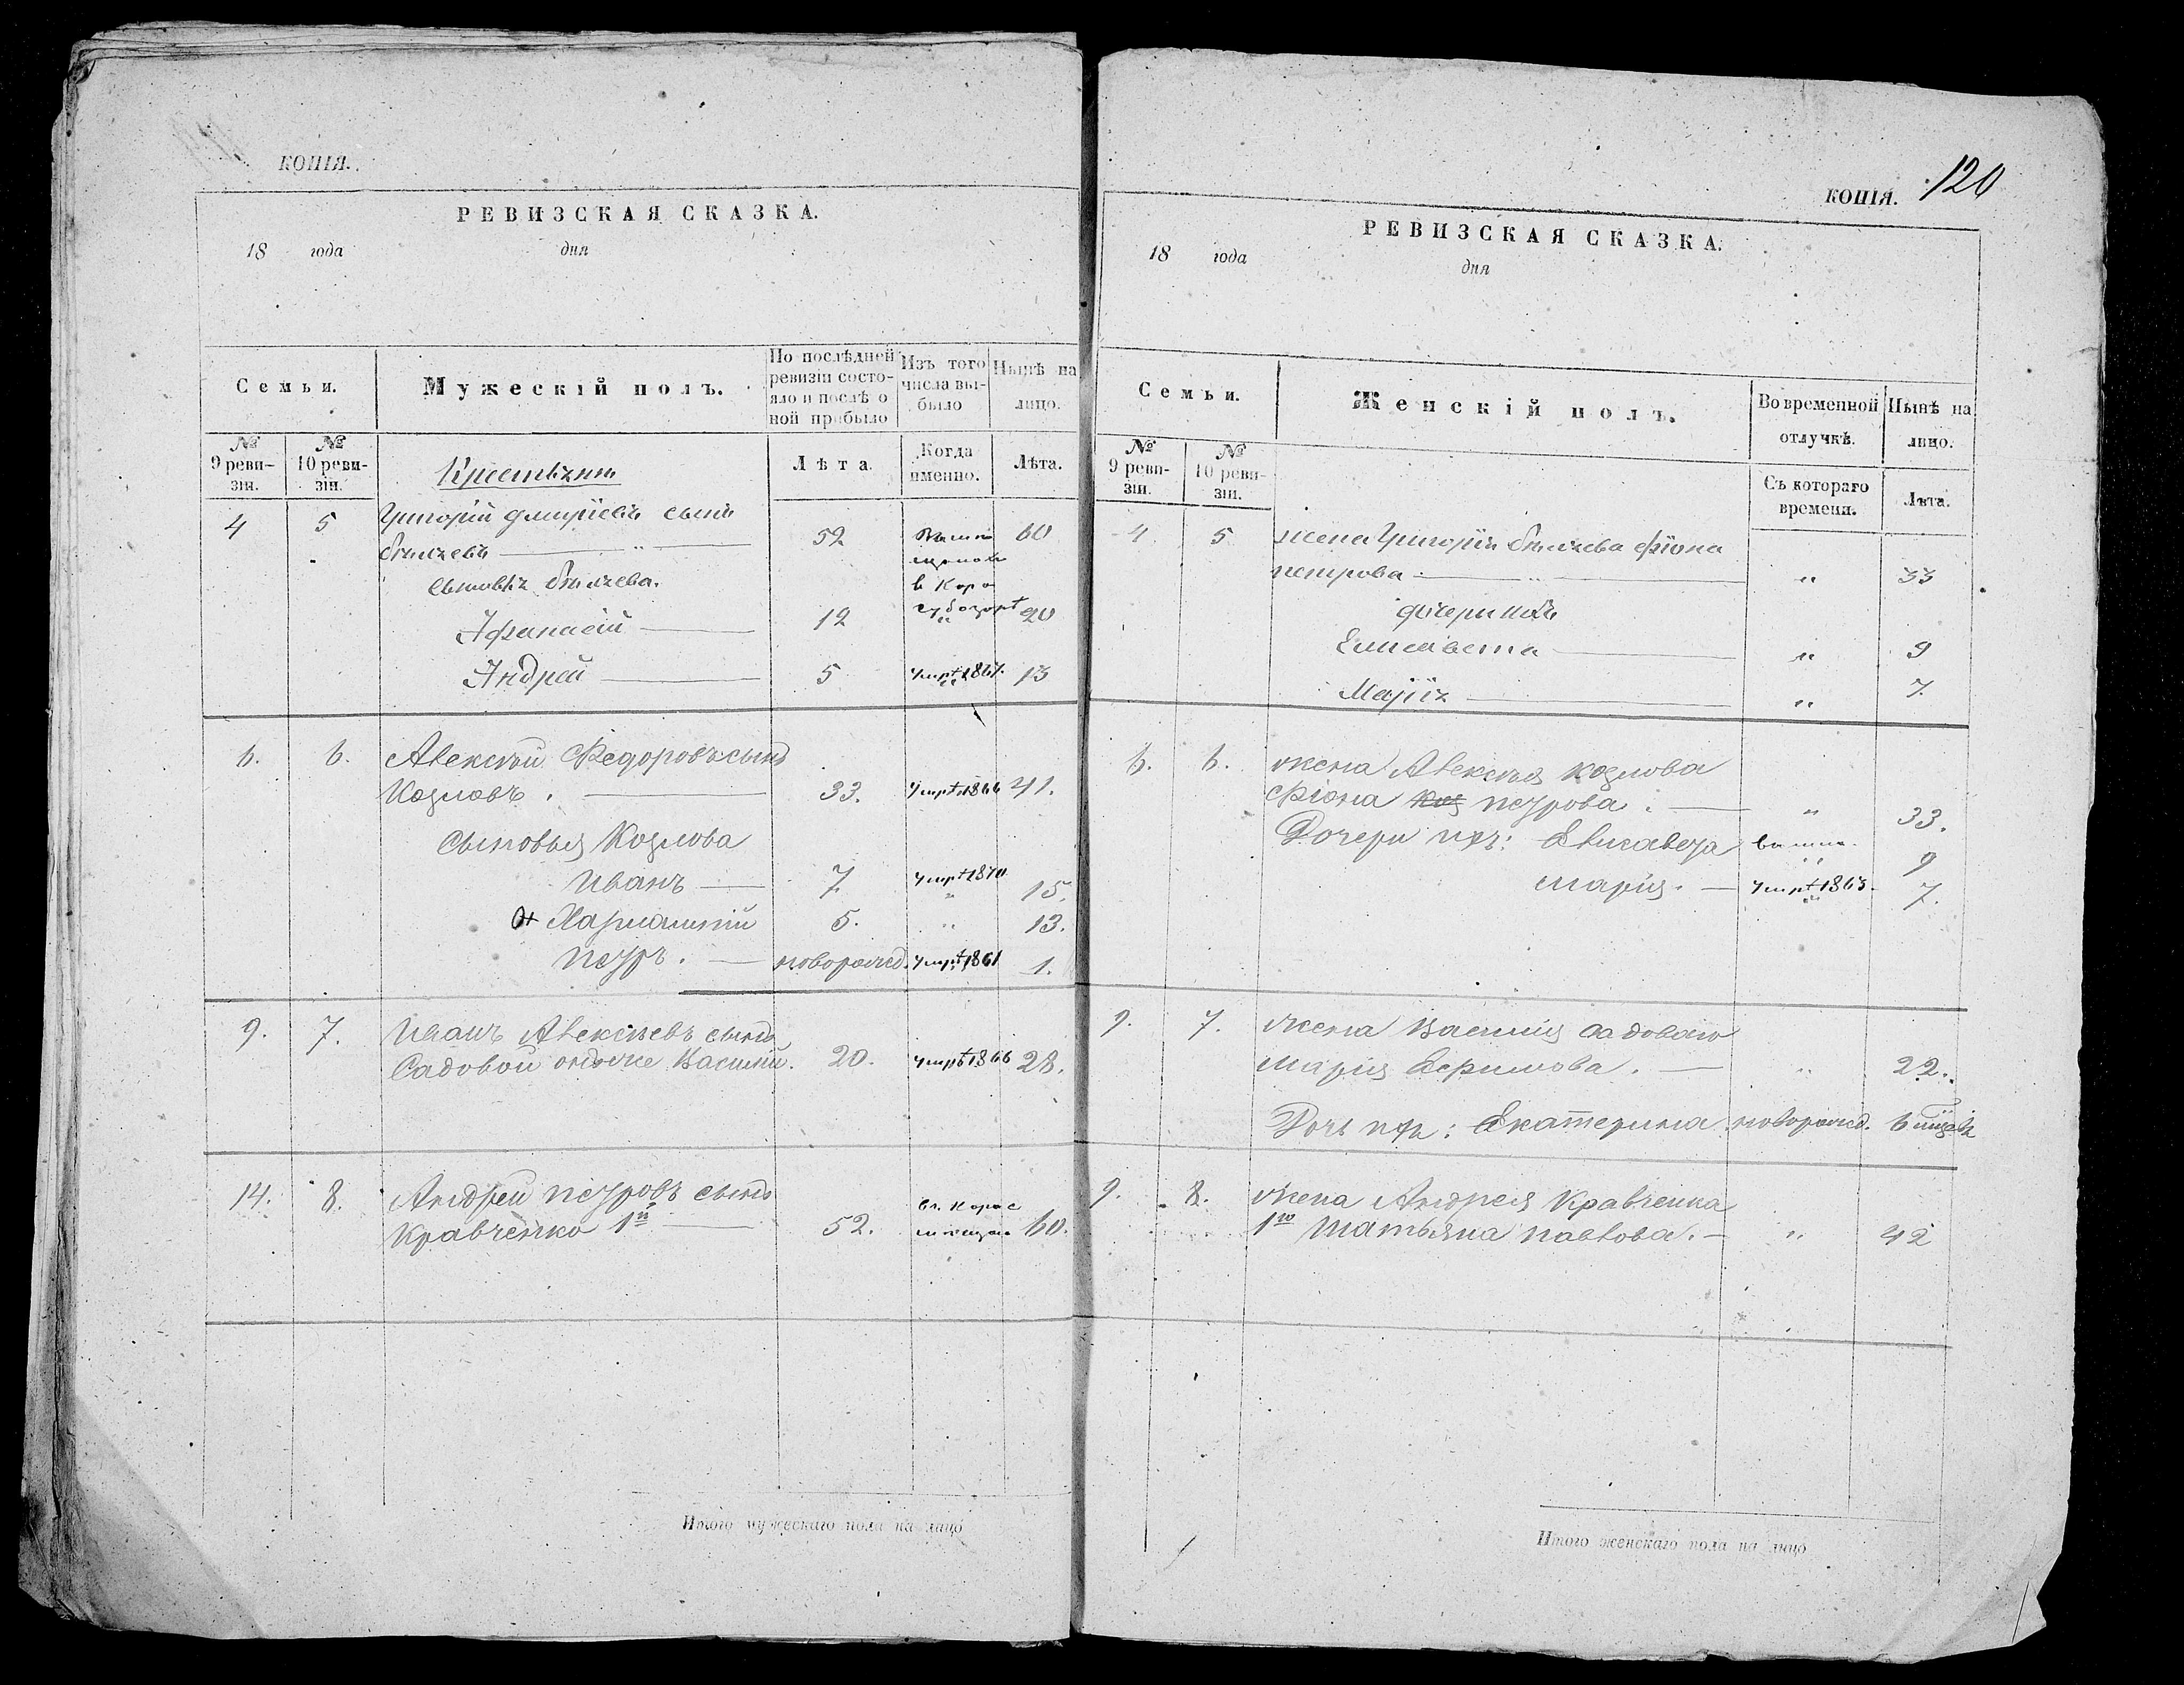 КОПІЯ.
РЕВИЗСКАЯ СКАЗКА.
18 года дня
Семьи.
Мужескій полъ.
По послѣдней ревизіи состояло и послѣ оной прибыло
Изъ того числа выбыло
Нынѣ на лицо.
№ 9 ревизіи.
№ 10 ревизіи.
Лѣта.
Когда именно.
Лѣта.
4 5 Григорій сынъ
52 60
Афанасій 12 20
Андрей 5 13
6. 6. Алексѣй Федоровъ сынъ
Козловъ. 33. умръ 1866 41.
Сыновья Козлова
Иванъ 7. умръ 1870 15.
5. " 13.
Петръ. новорожд. умръ 1861 1.
9. 7. Иванъ Алексѣевъ сынъ
Садовой онъ же Василій. 20. умръ 1866 28.
14. 8. Андрей Петровъ сынъ
Кравченко 1й 52. 60.
Итого мужескаго пола на лицо
120
КОПІЯ.
РЕВИЗСКАЯ СКАЗКА.
18 года дня
Семьи.
Женскій полъ.
Во временной отлучкѣ.
Нынѣ на лицо.
№ 9 ревизіи.
№ 10 ревизіи.
Съ котораго времени.
Лѣта.
4 5 жена Григорія Фіона
петрова " 33
Елисавета " 9
Марія " 7.
6. 6. жена Алексѣя Козлова
Фіона петрова. " 33.
Дочери Елисавета 9
Марія. умръ 7.
9. 7. Жена Василія Садоваго
Марія Ефимова. " 22.
Дочь Екатерина новорожд. 6
9. 8. Жена Андрея Кравченка
1го Татьяна Павлова. " 42
Итого женскаго пола на лицо